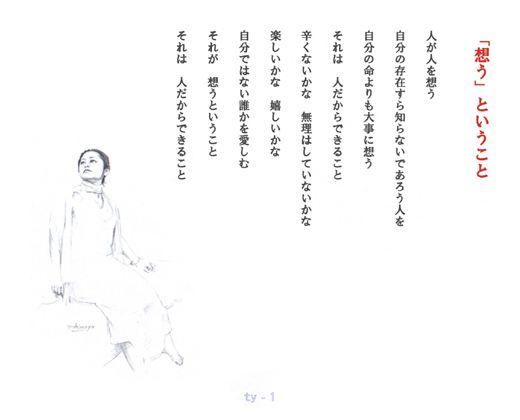 「想う」ということ
人が人を想う
自分の存在すら知らないであろう人を
自分の命よりも大事に想う
それは　人だからできること
辛くないかな　無理はしていないかな
楽しいかな　嬉しいかな
自分ではない誰かを愛しむ
それが　想うということ
それは　人だからできること
ty - 1